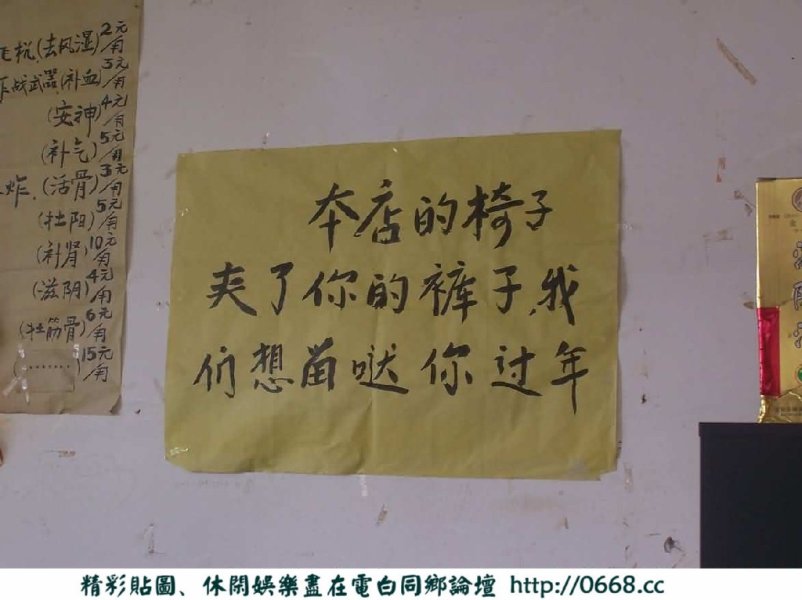 (去风湿) 2元/角
战武器(补血) 3元/角
(安神) 4元/角
(补气) 5元/角
炸.(活骨) 3元/角
(壮阳) 5元/角
(补肾) 10元/角
(滋阴) 4元/角
(壮筋骨) 6元/角
15元/角
本店的椅子
夹了你的裤子,我
们想留哒你过年
精彩貼圖、休閑娛樂盡在電白同鄉論壇 http://0668.cc